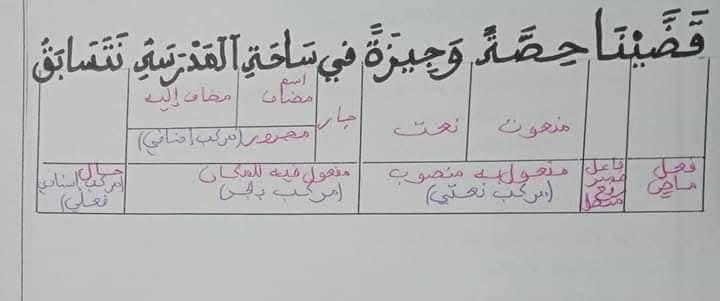 قَضَّيْنَا حِصَّةً وَجِيزَةً في سَاحَةِ المَدْرَسَةِ نَتَسَابَقُ
اسم
منعوت نعت جار مضاف مضاف إليه
مجرور (مركب إضافي)
فعل ماض فاعل ضمير رفع متصل مفعول به منصوب (مركب نعتي) مفعول فيه للمكان (مركب بالجر) حال (مركب إسنادي فعلي)